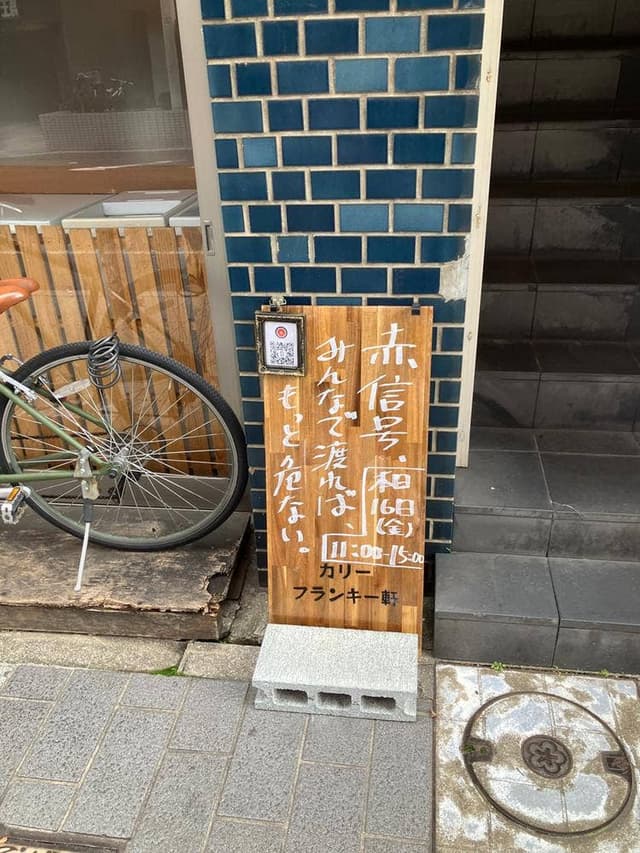 赤信号、
みんなで渡れば、
もっと危ない。
本日
16日
(金)
11:00-15:00
カリー
フランキー軒